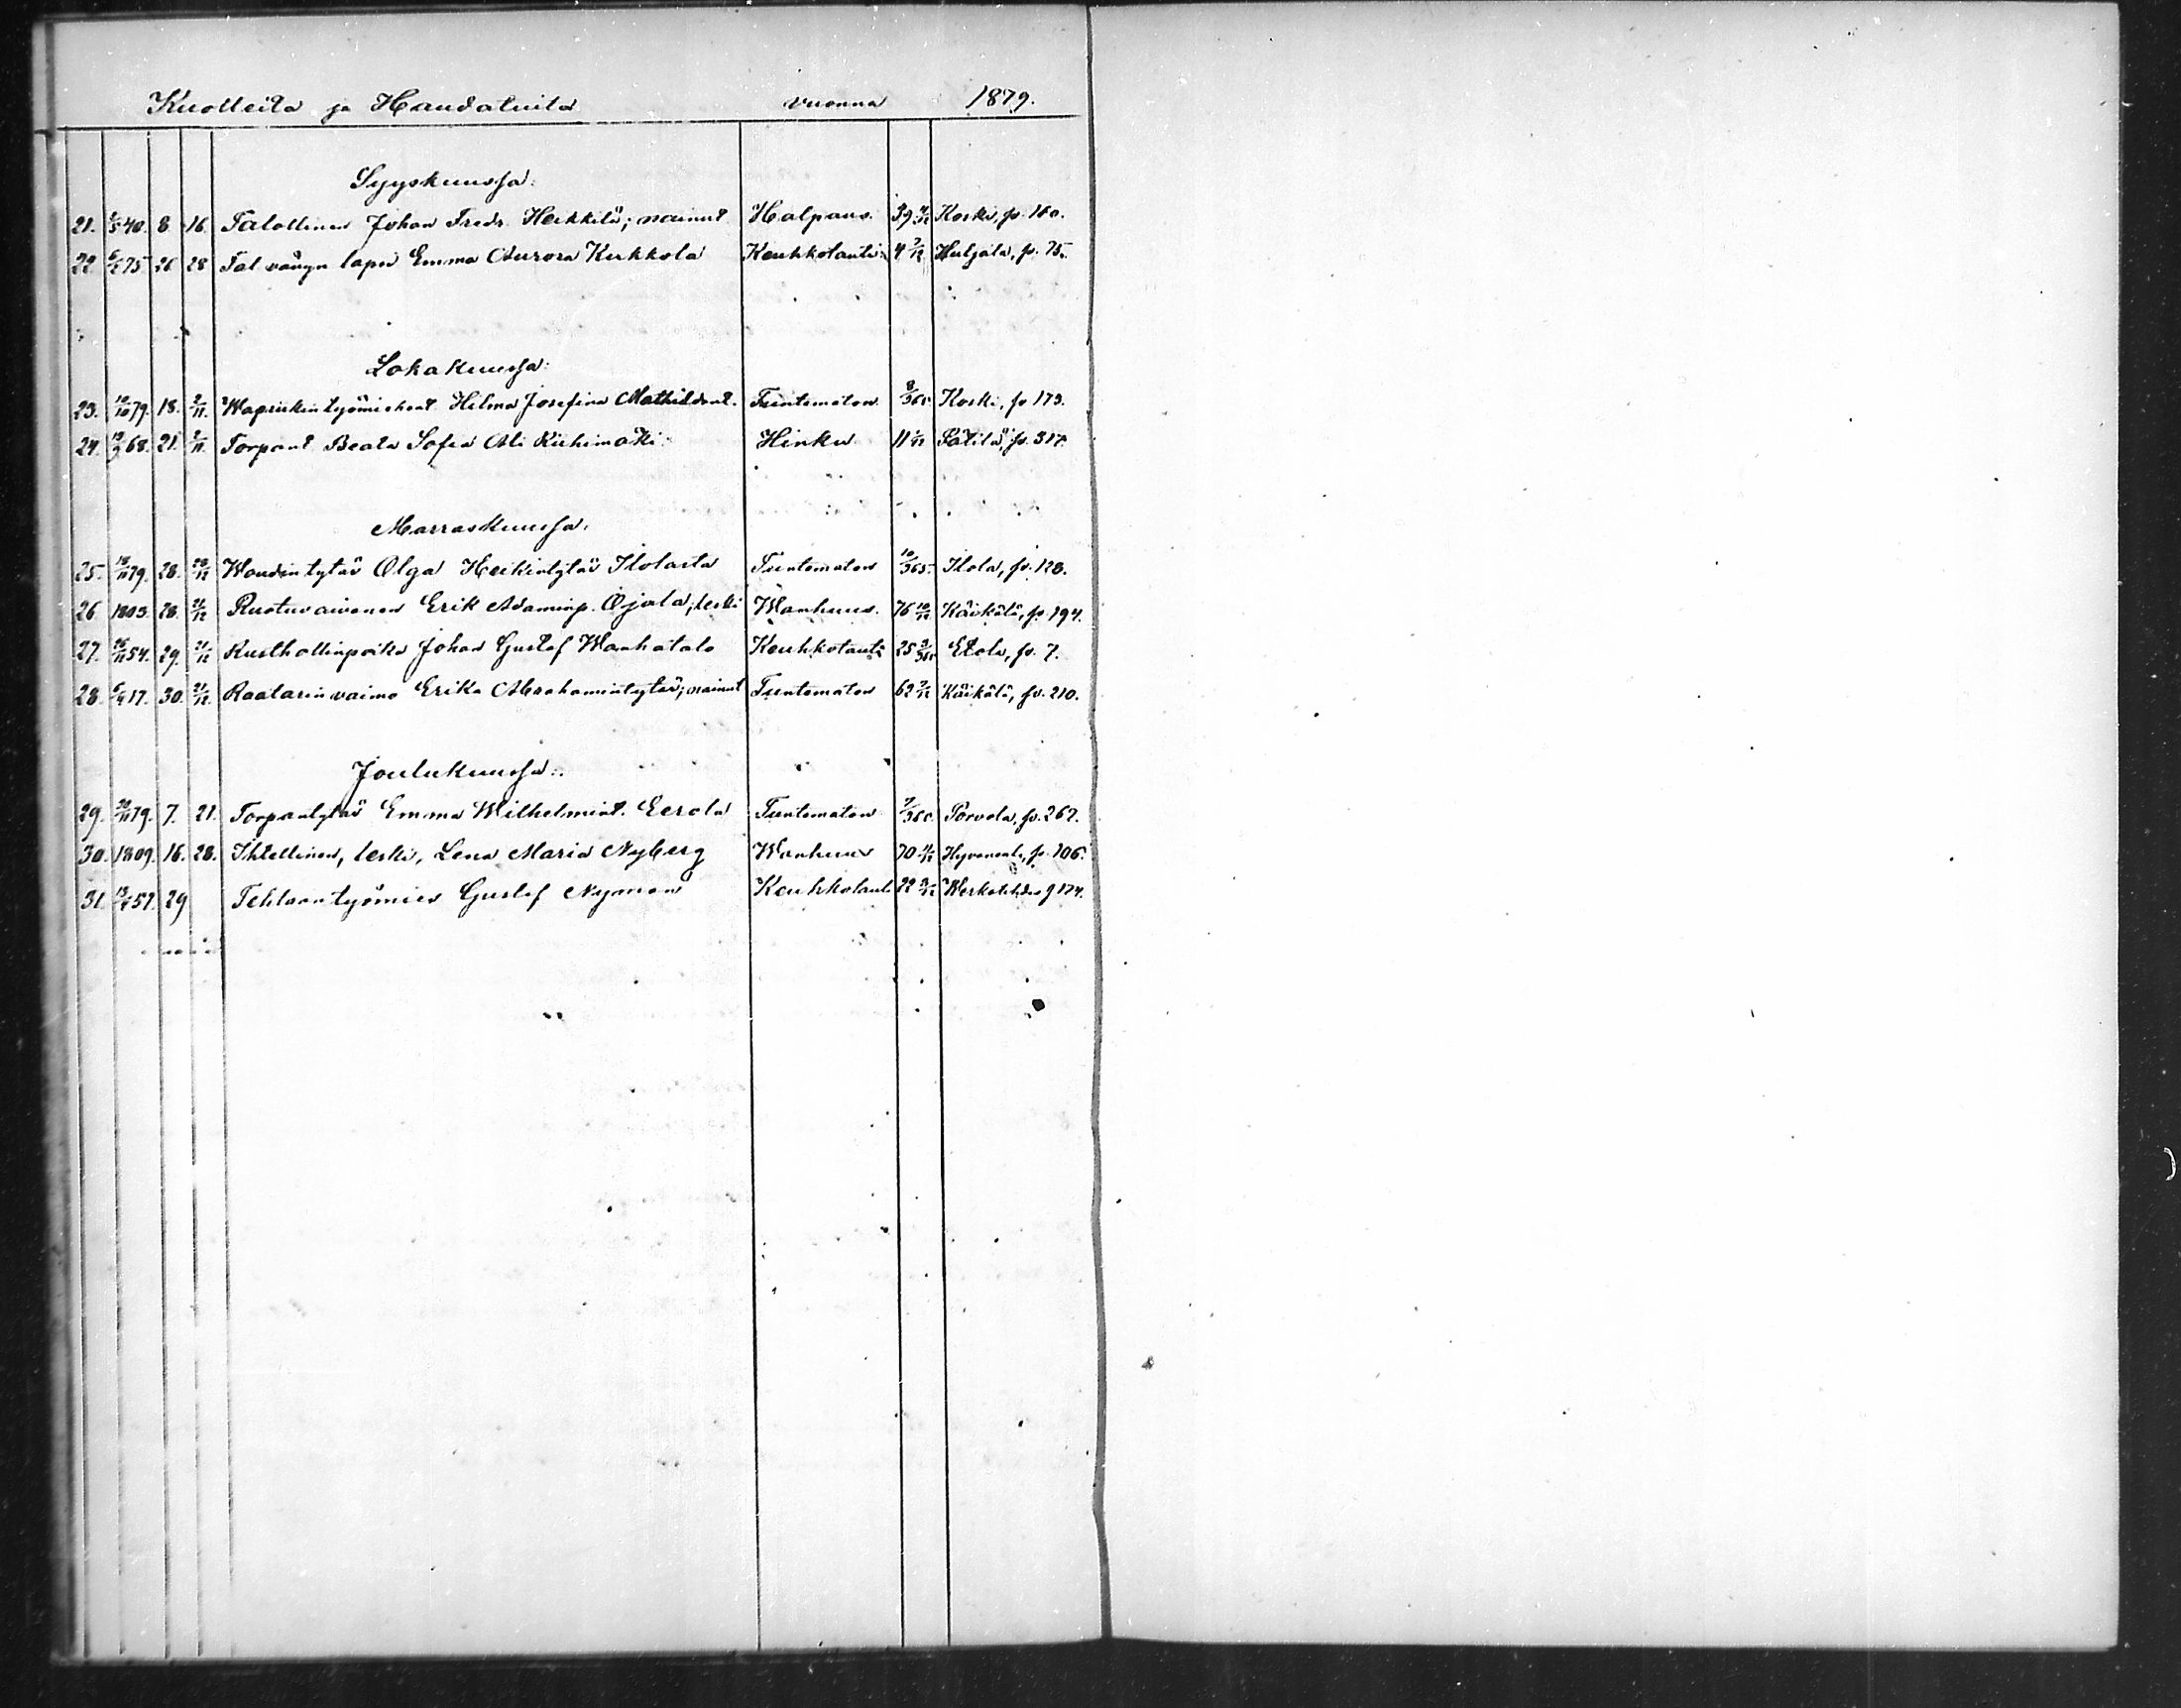 Kuolleita ja Haudatuita vuonna 1879.
Syyskuussa:
21. 5/5 40. 8 16. Talollinen Johan Fredr. Heikkilä; nainut Halpaus. 39 4/12 Koski, p. 160.
22. 75 26 28 Tal. väugn lapsi Emma Aurora Kirkkola Keuhkotauti 4 7/12 Huljala, p. 75.
Lokakuussa:
23. 10/10 79. 18. 2/11. Wapriikin työmiehent. Helma Josefina Mathildant. Tuntematon 8/365 Koski, p. 173.
24. 68. 21. 2/11. Torpant. Beata Sofia Ali Riihimäki Hinku 11 1/12 Pätilä, p. 317.
Marraskuussa.
25. 18/11 79. 28. 20/12 Woudintytär Olga Heikintytär Ilolasta Tuntematon 10/365. Ilola, p. 128.
26 1803. 28. 21/12 Ruotuvaivanen Erik Adaminp. Ojala; leski Wanhuus. 76 10/12 Käikälä, p. 194.
27. 26/11 54. 29. 21/12 Rusthollinpoika Johan Gustaf Wanhatalo Keuhkotauti 25 3/365 Etola, p. 7.
28. 17. 30. 21/12. Raatarin vaimo Erika Abrahamintytär; nainut Tuntematon 62 7/12 Käikälä, p. 210.
Joulukuussa.
29. 30/11 79. 7. 21. Torpantytär Emma Wilhelmiat. Eerola Tuntematon 7/365 Porvola, p. 267.
30. 1809. 16. 28. Ihtellinen, leski, Lena Maria Nyberg Wanhuus 70 p. 106.
31. 57. 29 Tehtaan työmies Gustaf Nyman Keuhkotauti 22 174.